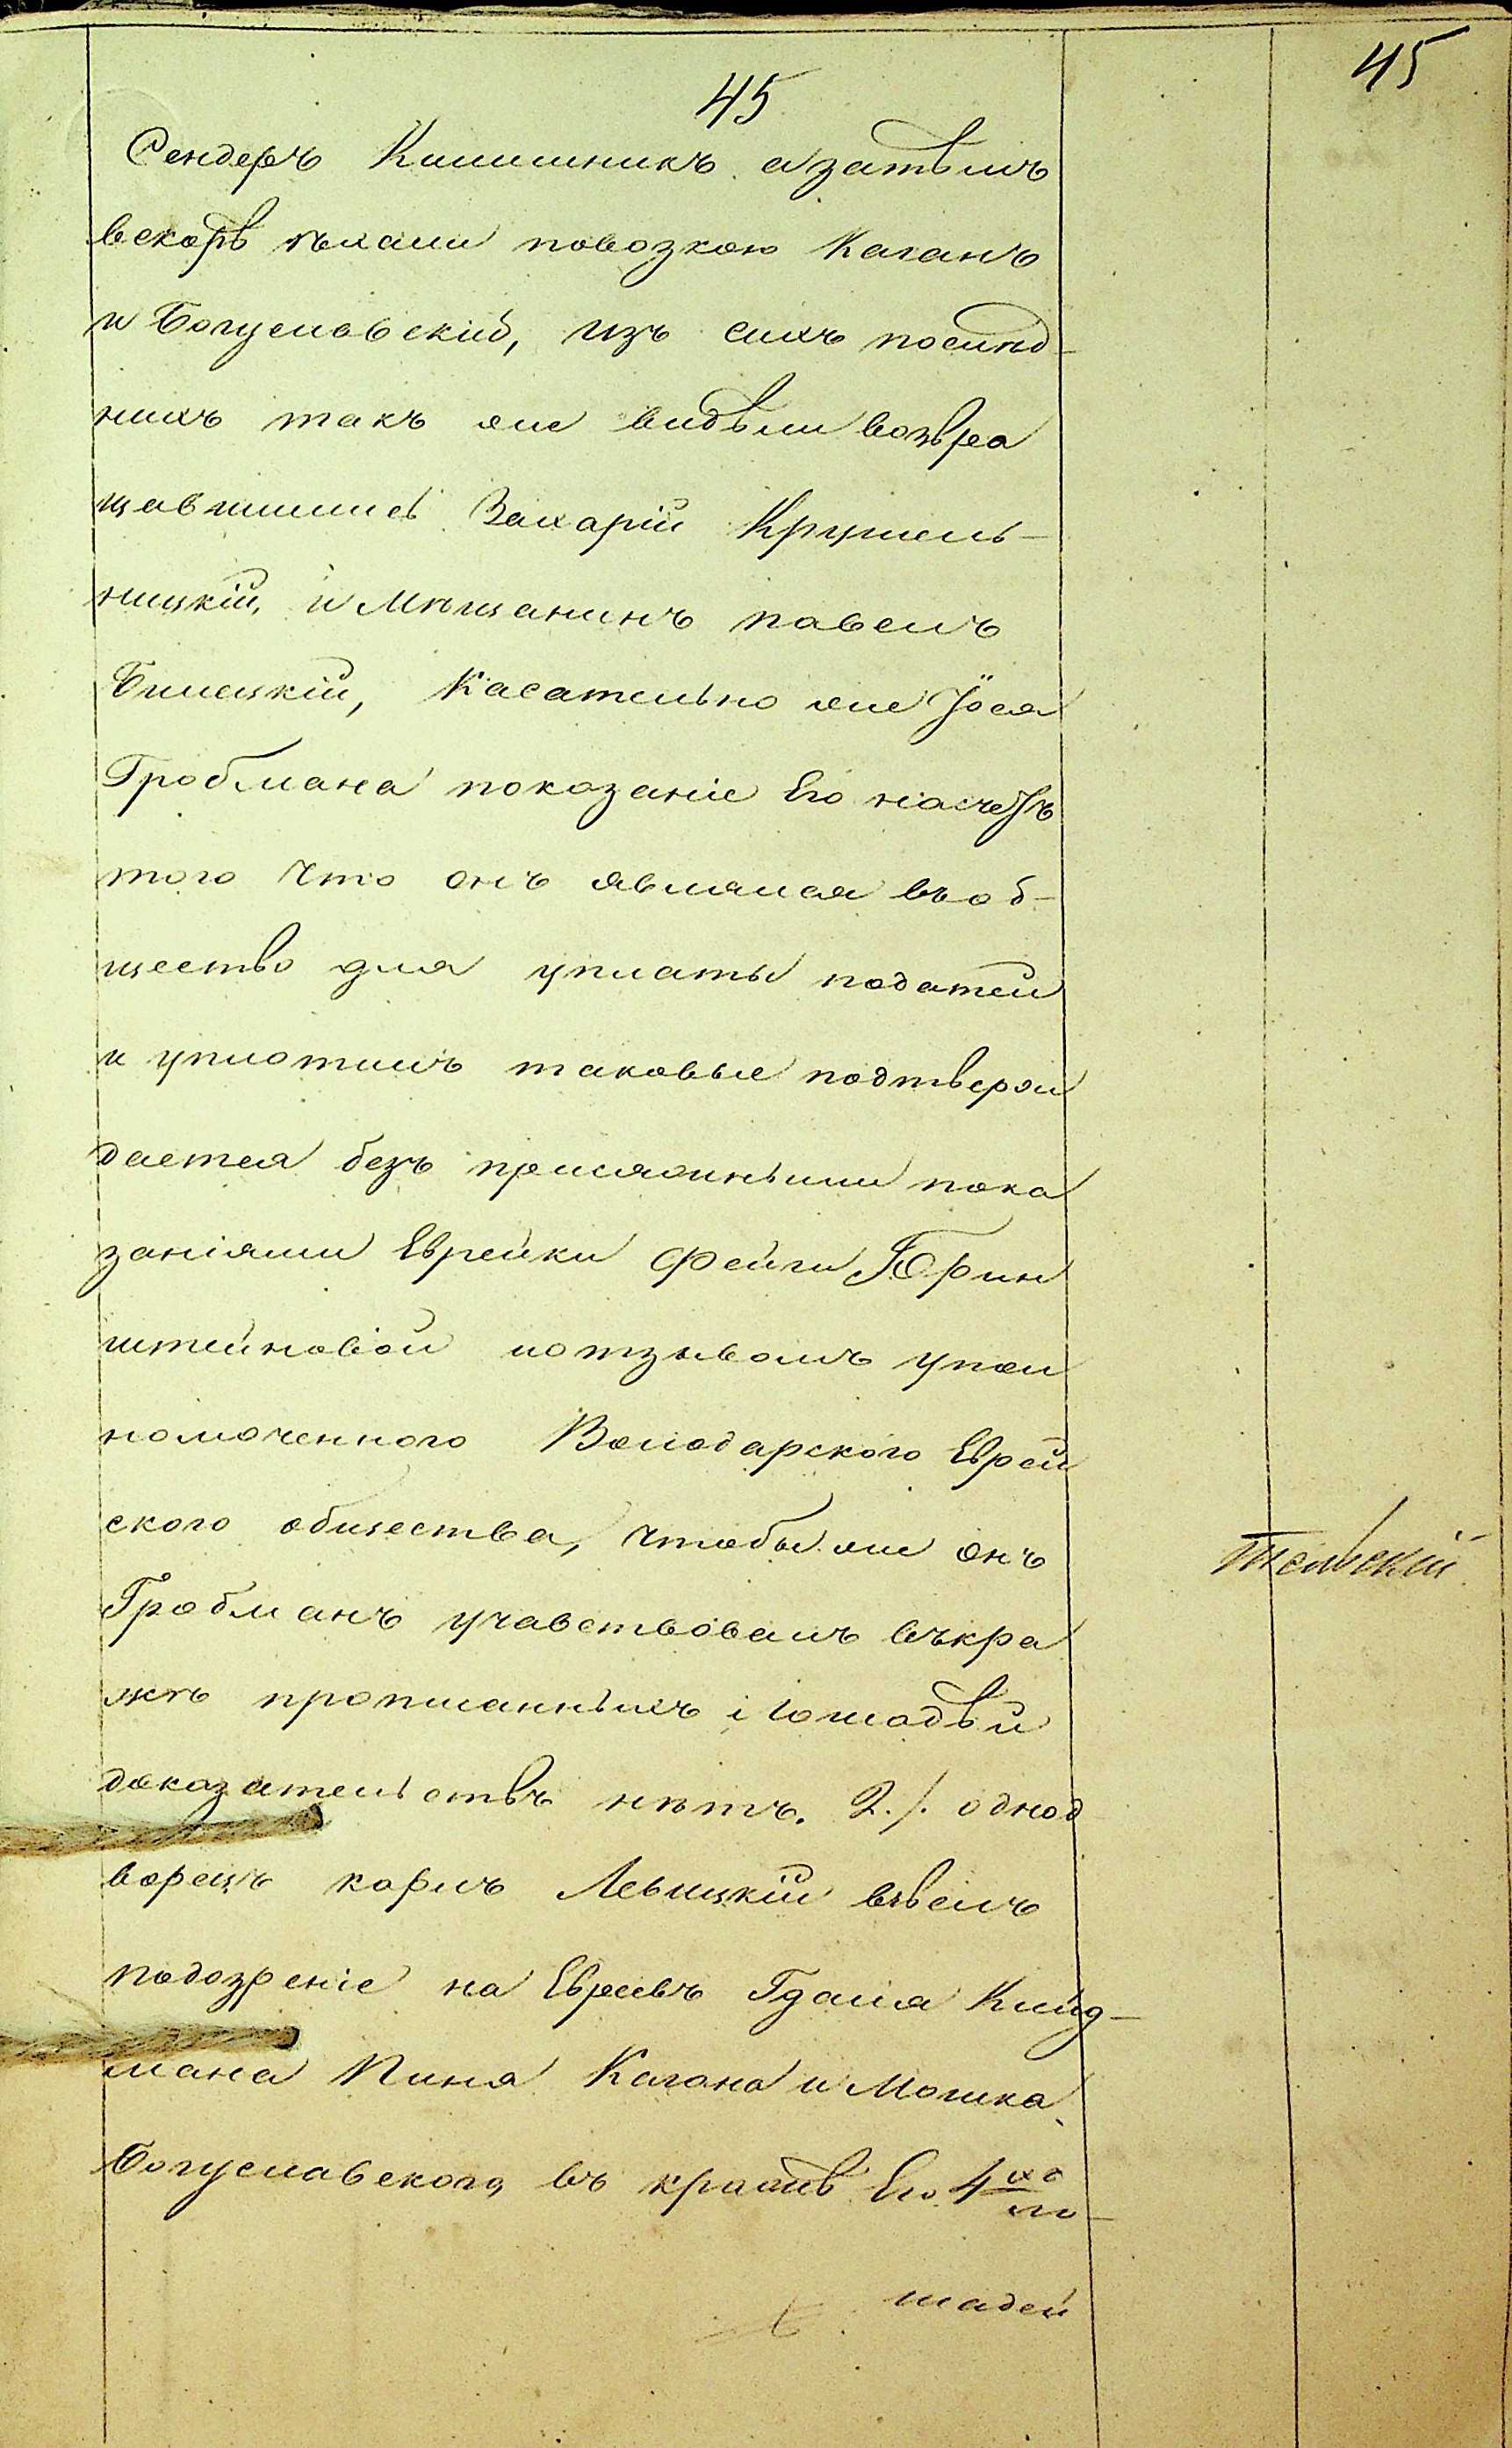 45
45
Сендеръ Кишишникъ а затѣмъ
вскорѣ ѣхали повозкою Каганъ
и Богуславскій, изъ сихъ послѣд-
нихъ такъ же видѣли возвра
щавшимися Захарій Крушель-
ницкій, и Мѣщанинъ павелъ
Билецкій, Касательно же Іося
Гробмана показаніе Его насчетъ
того что онъ являлся въ об-
щество для уплаты податей
и уплотилъ таковые подтверж
дается безъ присяжными пока
заніями Еврейки Фейги Бѳрин
штейновой и отзывомъ упол
номоченного Володарского Еврей
ского общества, чтобы же онъ
Гробманъ учавствовалъ въ кра
жѣ прописанныхъ лошадѣй
доказательствъ нѣтъ. 2./. однод
ворецъ карлъ Левицкій взвелъ
подозреніе на Евреевъ Гдаля Клейд-
мана Пиня Кагана и Мошка
Богуславского въ кражѣ Его 4хъ ло-
шадей